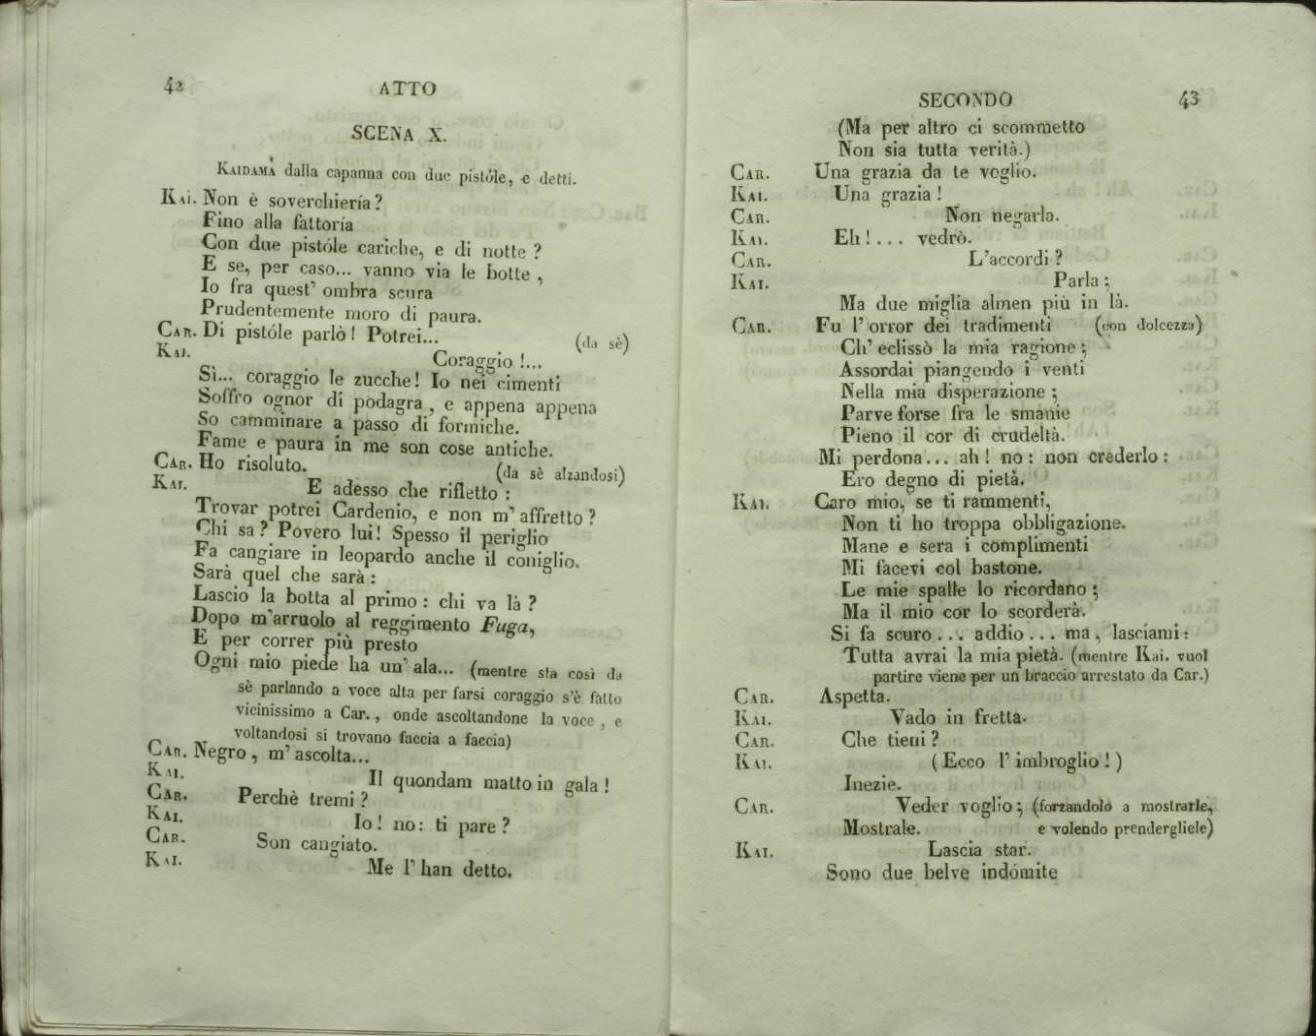 42 ATTO
SCENA X.
KAIDAMÀ dalla capanna con due pistóle, e detti.
KAI. Non è soverchieria?
Fino alla fattoría
Con due pistóle cariche, e di notte?
E se, per caso... vanno via le botte,
Io fra quest' ombra scura
Prudentemente moro di paura.
CAR. Di pistóle parlò! Potrei... (da sè)
KAI. Coraggio!...
Sì... coraggio le zucche! Io nei cimenti
Soffro ognor di podagra, e appena appena
So camminare a passo di formiche.
Fame e paura in me son cose antiche.
CAR. Ho risoluto. (da sè alzandosi)
KAI. E adesso che rifletto:
Trovar potrei Cardenio, e non m' affretto?
Chi sa? Povero lui! Spesso il periglio
Fa cangiare in leopardo anche il coniglio.
Sarà quel che sarà:
Lascio la botta al primo: chi va là?
Dopo m'arruolo al reggimento Fuga,
E per correr più presto
Ogni mio piede ha un' ala... (mentre sta così da
sè parlando a voce alta per farsi coraggio s'è fatto
vicinissimo a Car., onde ascoltandone la voce, e
voltandosi si trovano faccia a faccia)
CAR. Negro, m' ascolta...
KAI. Il quondam matto in gala!
CAR. Perchè tremi?
KAI. Io! no: ti pare?
CAR. Son cangiato.
KAI. Me l' han detto.
SECONDO 43
(Ma per altro ci scommetto
Non sia tutta verità.)
CAR. Una grazia da te voglio.
KAI. Una grazia!
CAR. Non negarla.
KAI. Eh!... vedrò.
CAR. L'accordi?
KAI. Parla;
Ma due miglia almen più in là.
CAR. Fu l' orror dei tradimenti (con dolcezza)
Ch' eclissò la mia ragione;
Assordai piangendo i venti
Nella mia disperazione;
Parve forse fra le smanie
Pieno il cor di crudeltà.
Mi perdona... ah! no: non crederlo:
Ero degno di pietà.
KAI. Caro mio, se ti rammenti,
Non ti ho troppa obbligazione.
Mane e sera i complimenti
Mi facevi col bastone.
Le mie spalle lo ricordano;
Ma il mio cor lo scorderà.
Si fa scuro... addio... ma, lasciami:
Tutta avrai la mia pietà. (mentre Kai. vuol
partire viene per un braccio arrestato da Car.)
CAR. Aspetta.
KAI. Vado in fretta.
CAR. Che tieni?
KAI. (Ecco l' imbroglio!)
Inezie.
CAR. Veder voglio; (forzandolo a mostrarle,
Mostrale. e volendo prendergliele)
KAI. Lascia star.
Sono due belve indómite